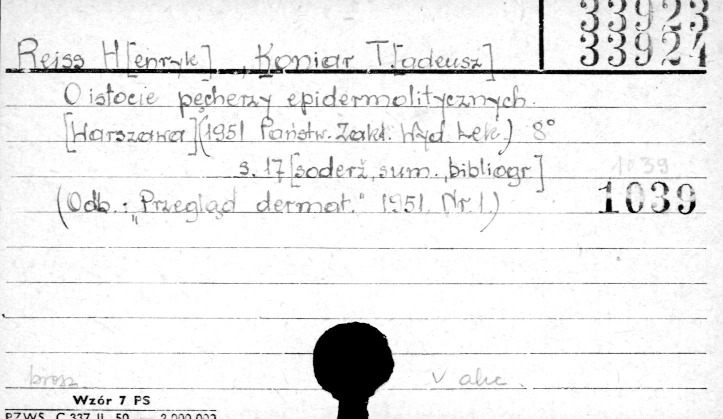 33923
33924
Reiss H[enryk], Koniar T[adeusz]
O istocie pęcherzy epidermolitycznych.
[Warszawa] (1951 Państw. Zakł. Wyd. Lek.) 8°
s. 17 [soderž, sum., bibliogr]
1039
(Odb.: „Przegląd dermat." 1951. Nr. 1.)
1039
brosz.
V akc.
Wzór 7 PS
PZWS. C 337 II. 50 — 2.000.000